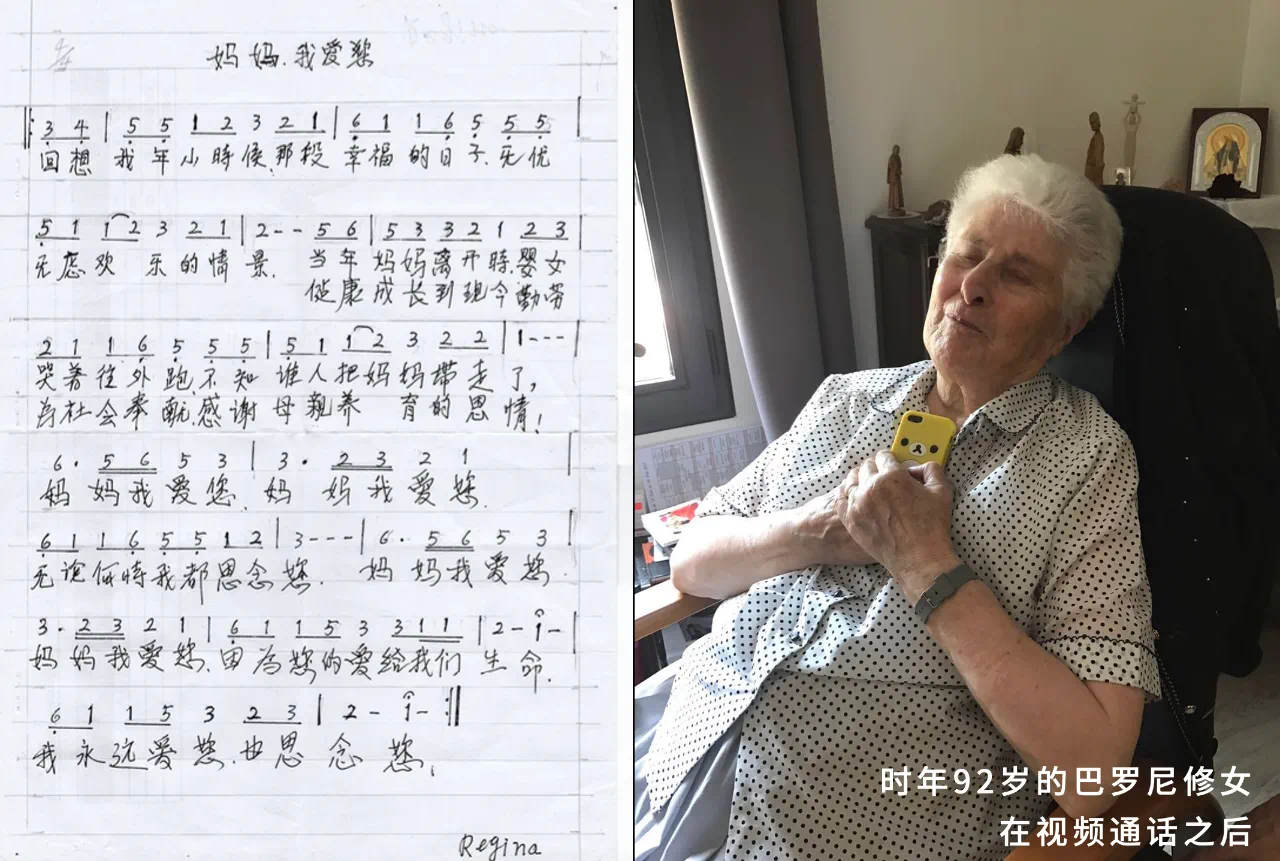 4/4
妈妈.我爱您
‖: 3 4 | 5 5 1 2 3 2 1 | 6 1 1 6 5 5 5 |
回想 我年小時候.那段 幸福的日子.无忧
5 1 1 2 3 2 1 | 2 - - 5 6 | 5 3 3 2 1 2 3 |
无虑欢乐的情景. 当年妈妈离开時.婴女
健康成长到现今勤劳
2 1 1 6 5 5 5 | 5 1 1 2 3 2 2 | 1 - - -
哭着往外跑.不知谁人把妈妈带走了,
为社会奉献.感谢母親养育的恩情!
6 · 5 6 5 3 | 3 · 2 3 2 1 |
妈妈我爱您.妈妈我爱您.
6 1 1 6 5 5 1 2 | 3 - - - | 6 · 5 6 5 3 |
无论何時我都思念您. 妈妈我爱您.
3 · 2 3 2 1 | 6 1 1 5 3 3 1 1 | 2 - 1 - |
妈妈我爱您.因为您的爱给我们生命.
6 1 1 5 3 2 3 | 2 - 1 - :‖
我永远爱您.也思念您.
Regina
时年92岁的巴罗尼修女
在视频通话之后